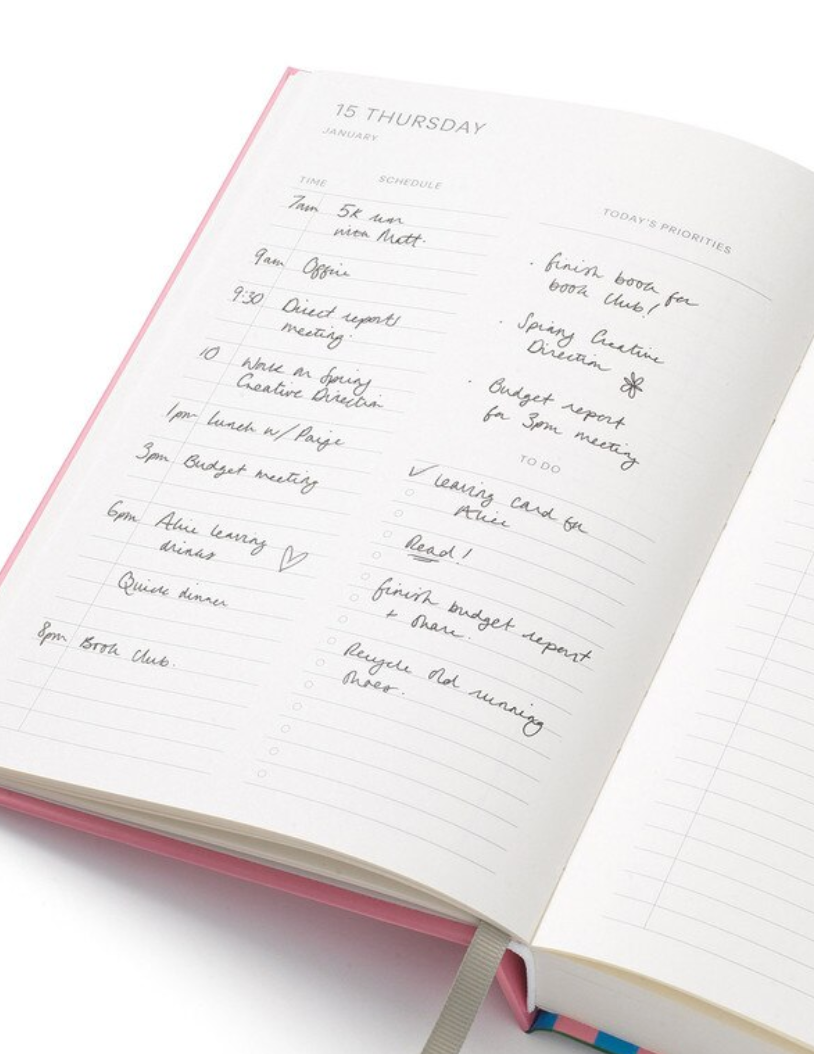 15 THURSDAY
JANUARY
TIME SCHEDULE
7am 5K run
with Matt.
9am Office
9:30 Direct reports
meeting.
10 Work on Spring
Creative Direction
1pm Lunch w/ Paige
3pm Budget meeting
6pm Alice leaving
drinks ♡
Quick dinner
8pm Book Club.
TODAY'S PRIORITIES
· finish book for
book club!
· Spring Creative
Direction
· Budget report
for 3pm meeting
TO DO
✓ leaving card for
Alice
Read!
finish budget report
+ share.
Recycle old running
shoes.